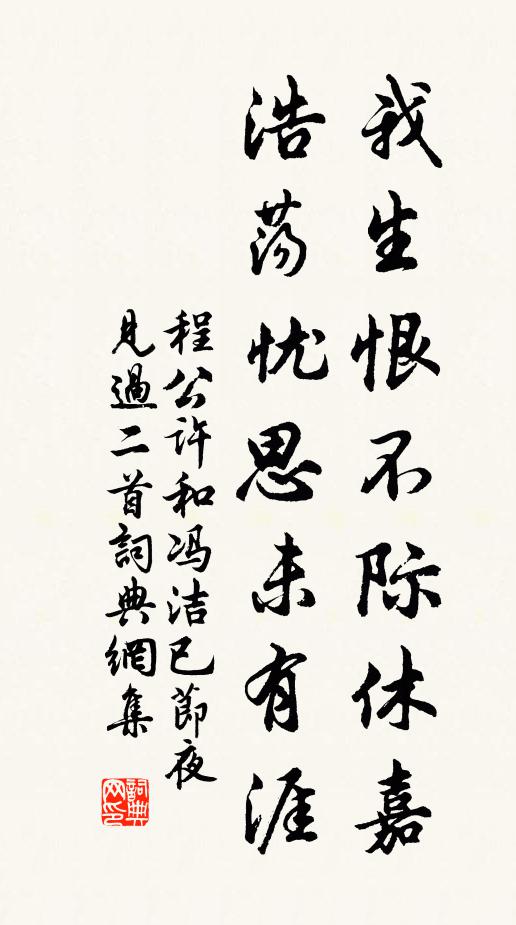 我生恨不际休嘉
浩荡忧思未有涯
程公许和冯洁已節夜
見過二首詞典網集
詞典网印